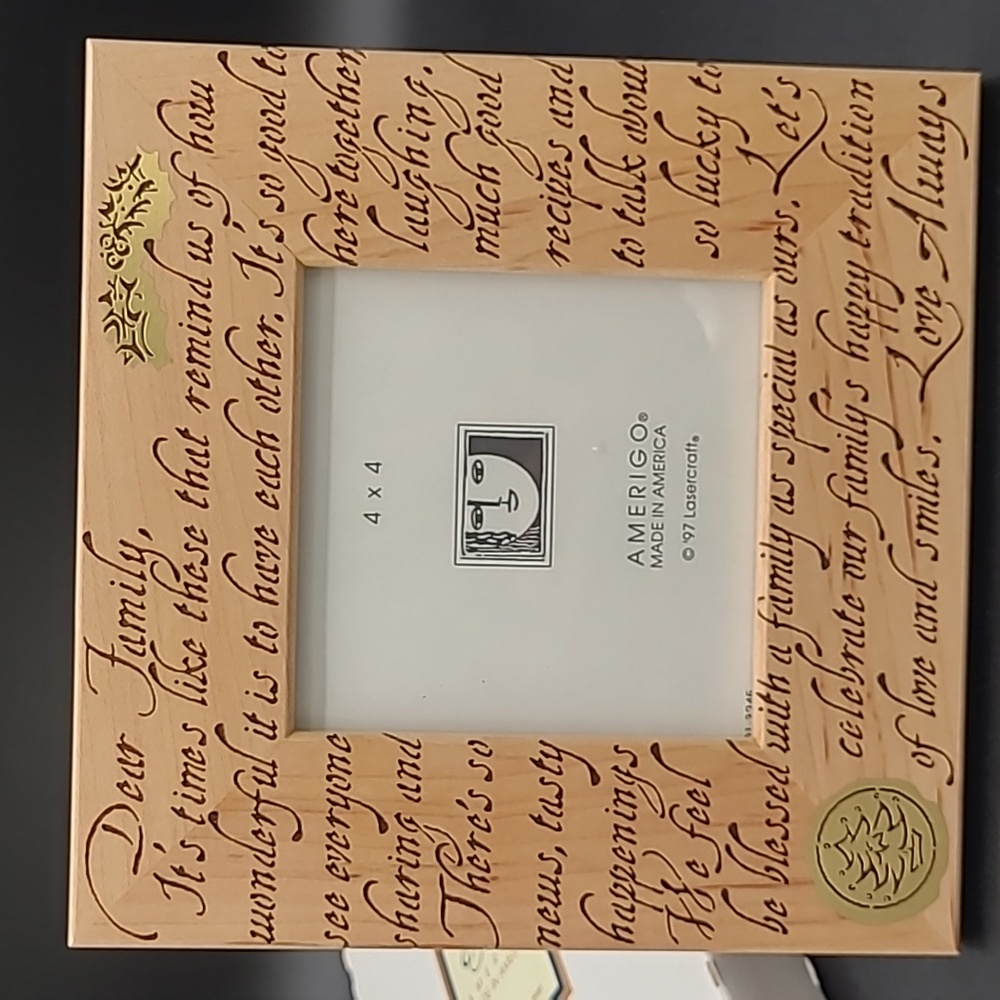 Dear Family,
It's times like these that remind us of how
wonderful it is to have each other. It's so good to
see everyone here together
sharing and laughing.
There's so much good
news, tasty recipes and
happenings to talk about
We feel so lucky to
be blessed with a family as special as ours. Let's
celebrate our family's happy tradition
of love and smiles. Love Always
4 x 4
AMERIGO®
MADE IN AMERICA
© '97 Lasercraft®